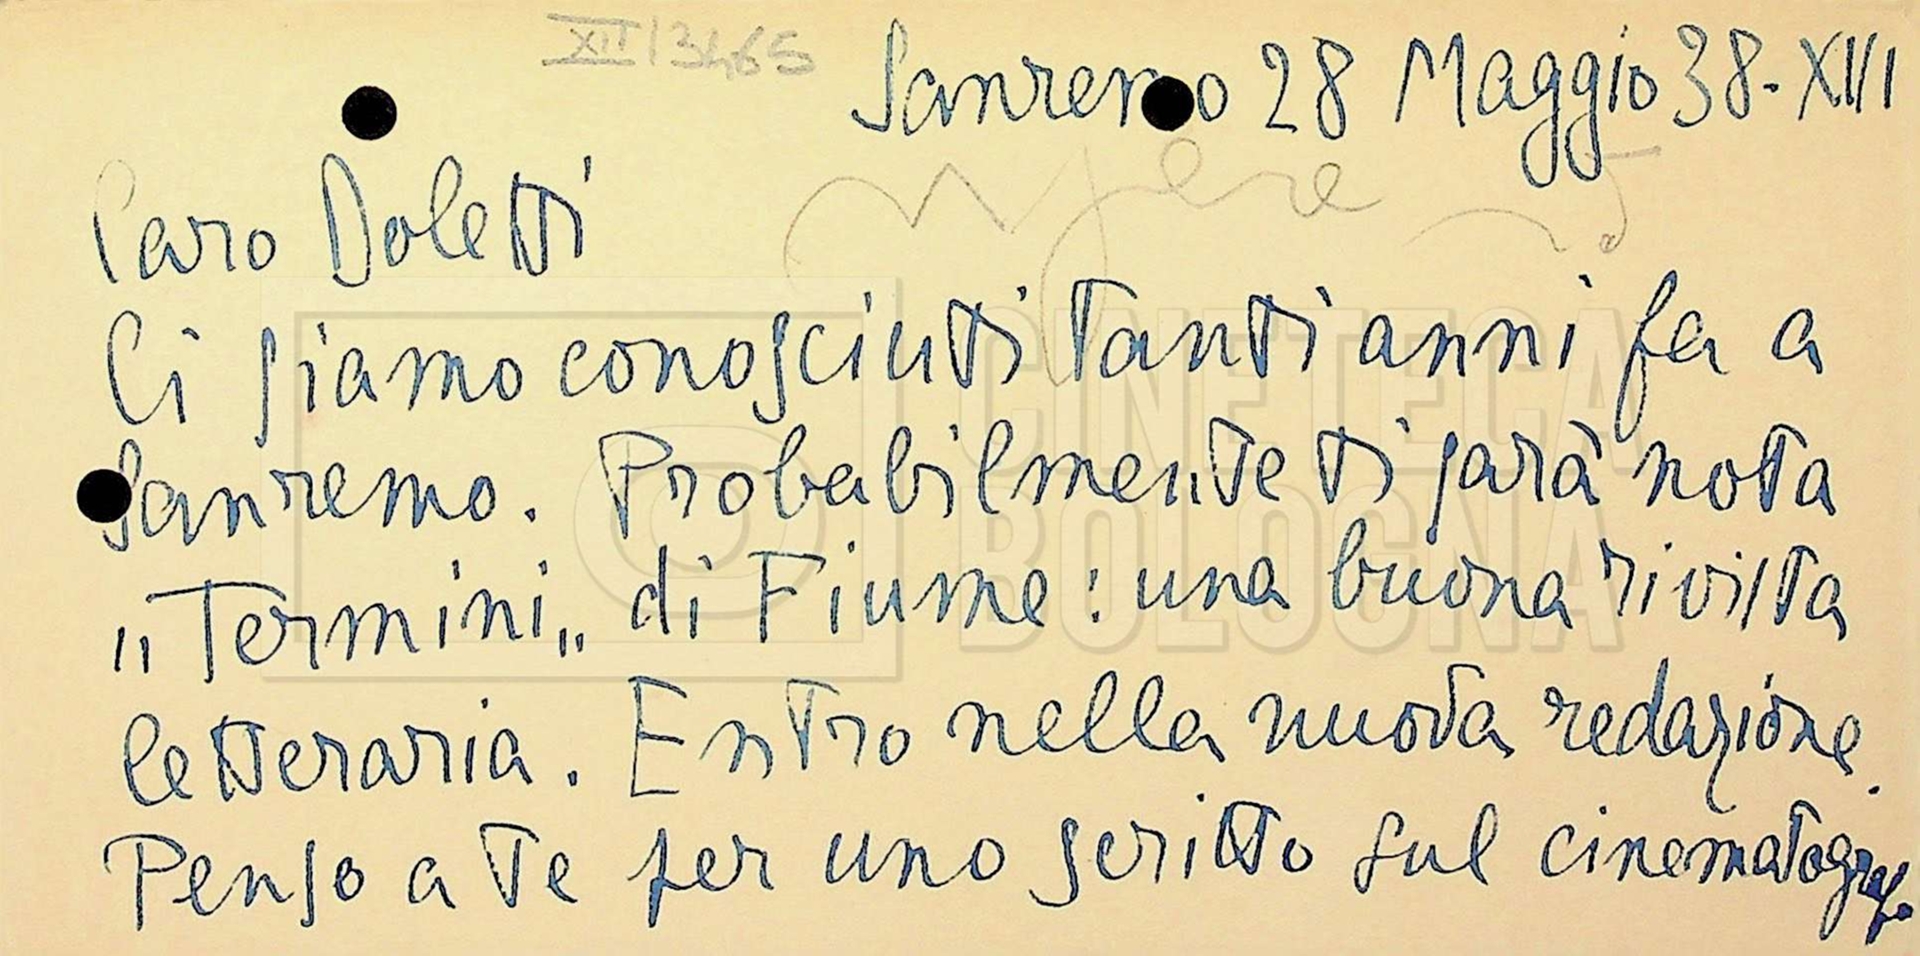 XII/3465
Sanremo 28 Maggio 38-XVI
Caro Doletti
Ci siamo conosciuti tanti anni fa a
Sanremo. Probabilmente ti sarà nota
"Termini" di Fiume: una buona rivista
letteraria. Entro nella nuova redazione.
Penso a te per uno scritto sul cinematograf.
CINETECA
BOLOGNA